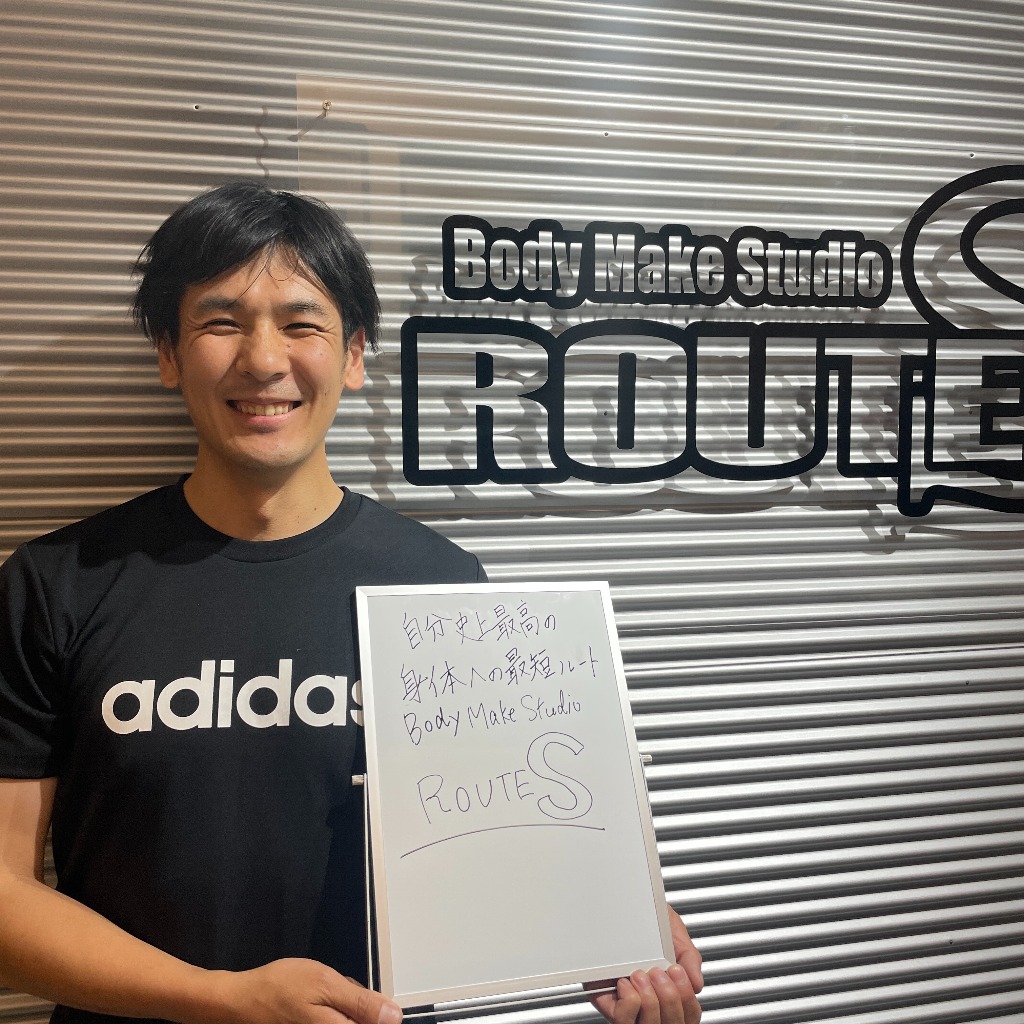 Body Make Studio
ROUTE
adidas
自分史上最高の
身体への最短ルート
Body Make Studio
ROUTES